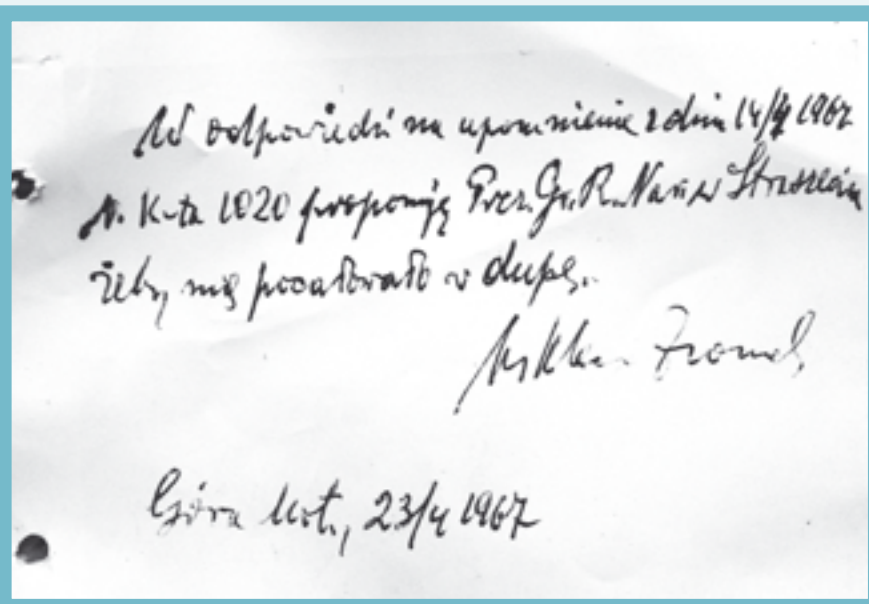 W odpowiedzi na upomnienie z dnia 14/4 1967
N. K-ta 1020 proponuję Prez. Gr. R. Nar. w Straszęcin
żeby mię pocałowało w dupę.
Góra Mot., 23/4 1967